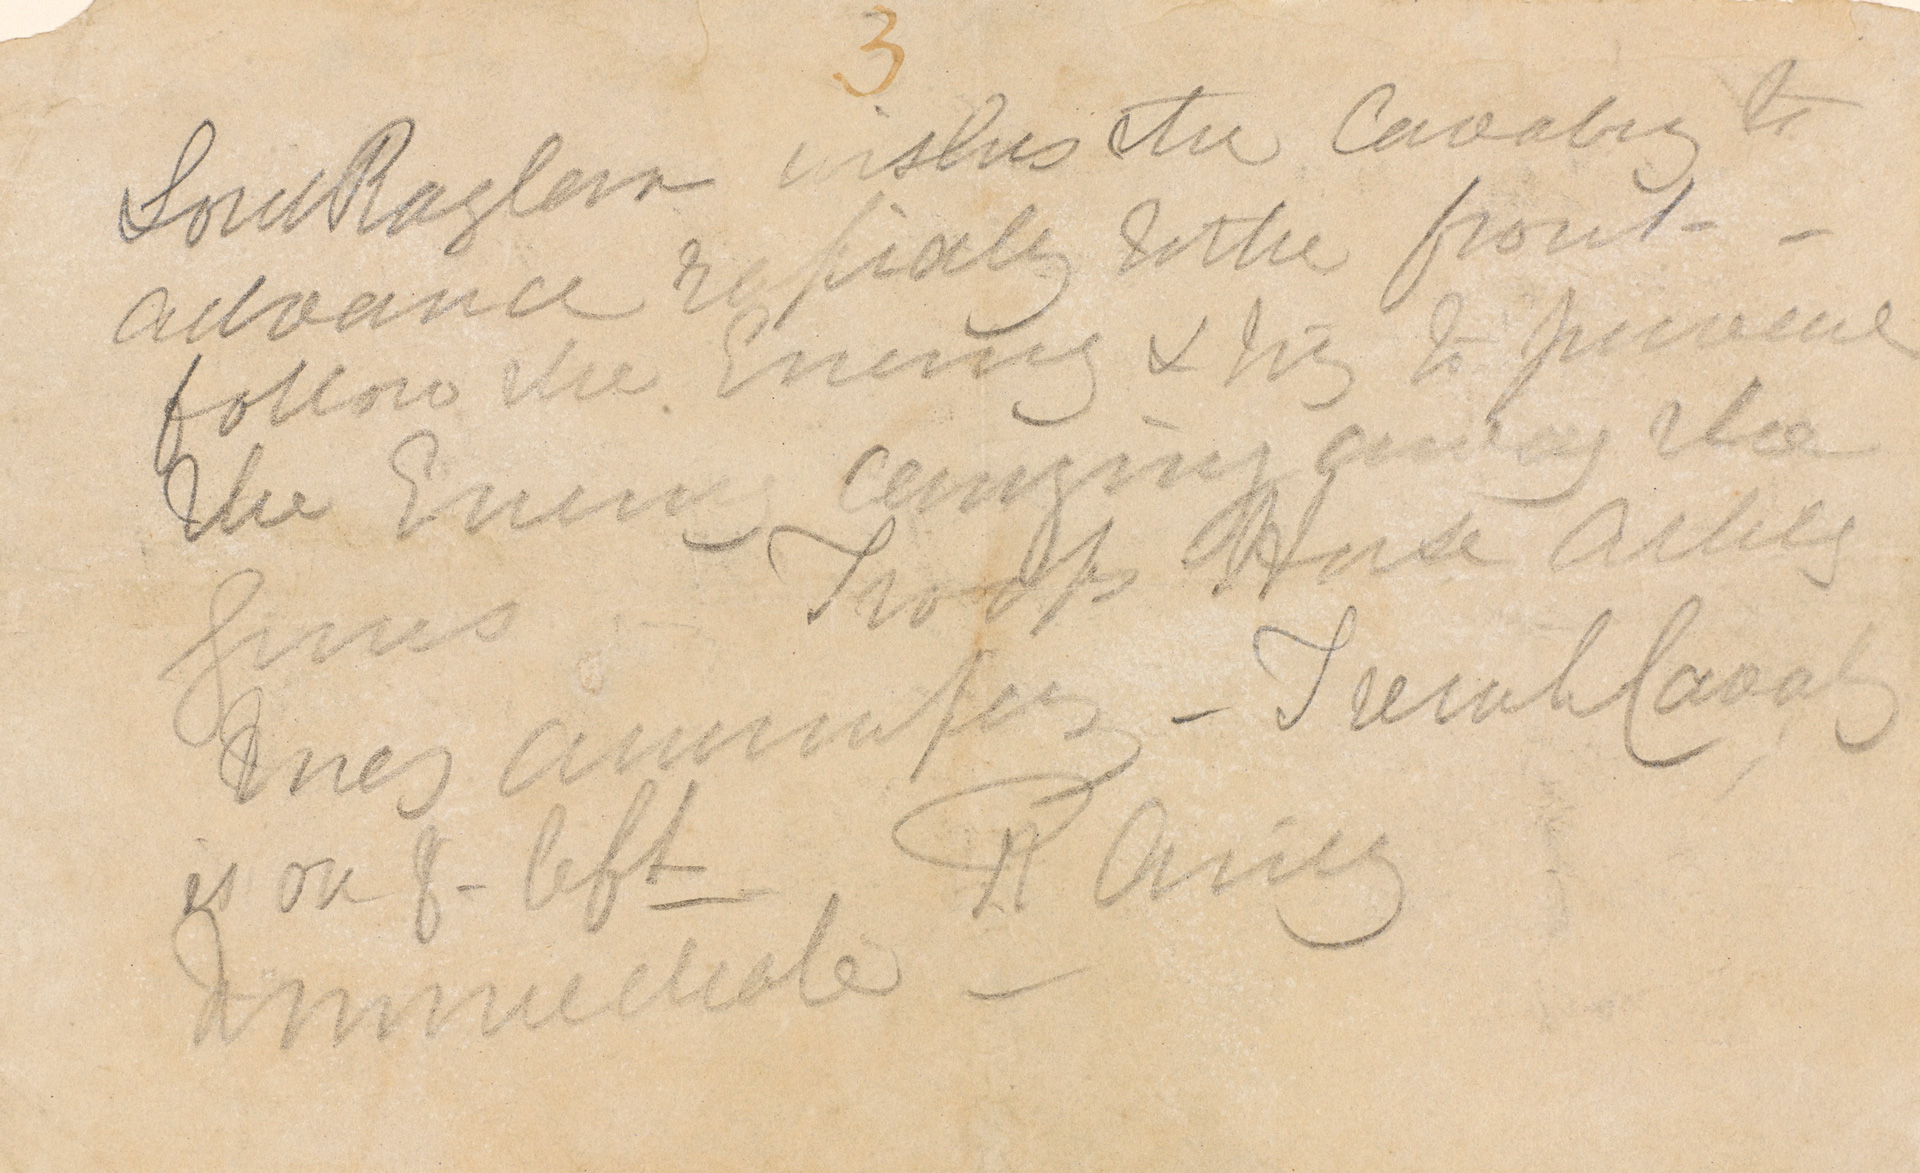 3
Lord Raglan wishes the Cavalry to
advance rapidly to the front -
follow the Enemy & try to prevent
the Enemy carrying away the
guns - Troop Horse Artilly
may accompany - French Cavaly
is on yr left
R Airey
Immediate -